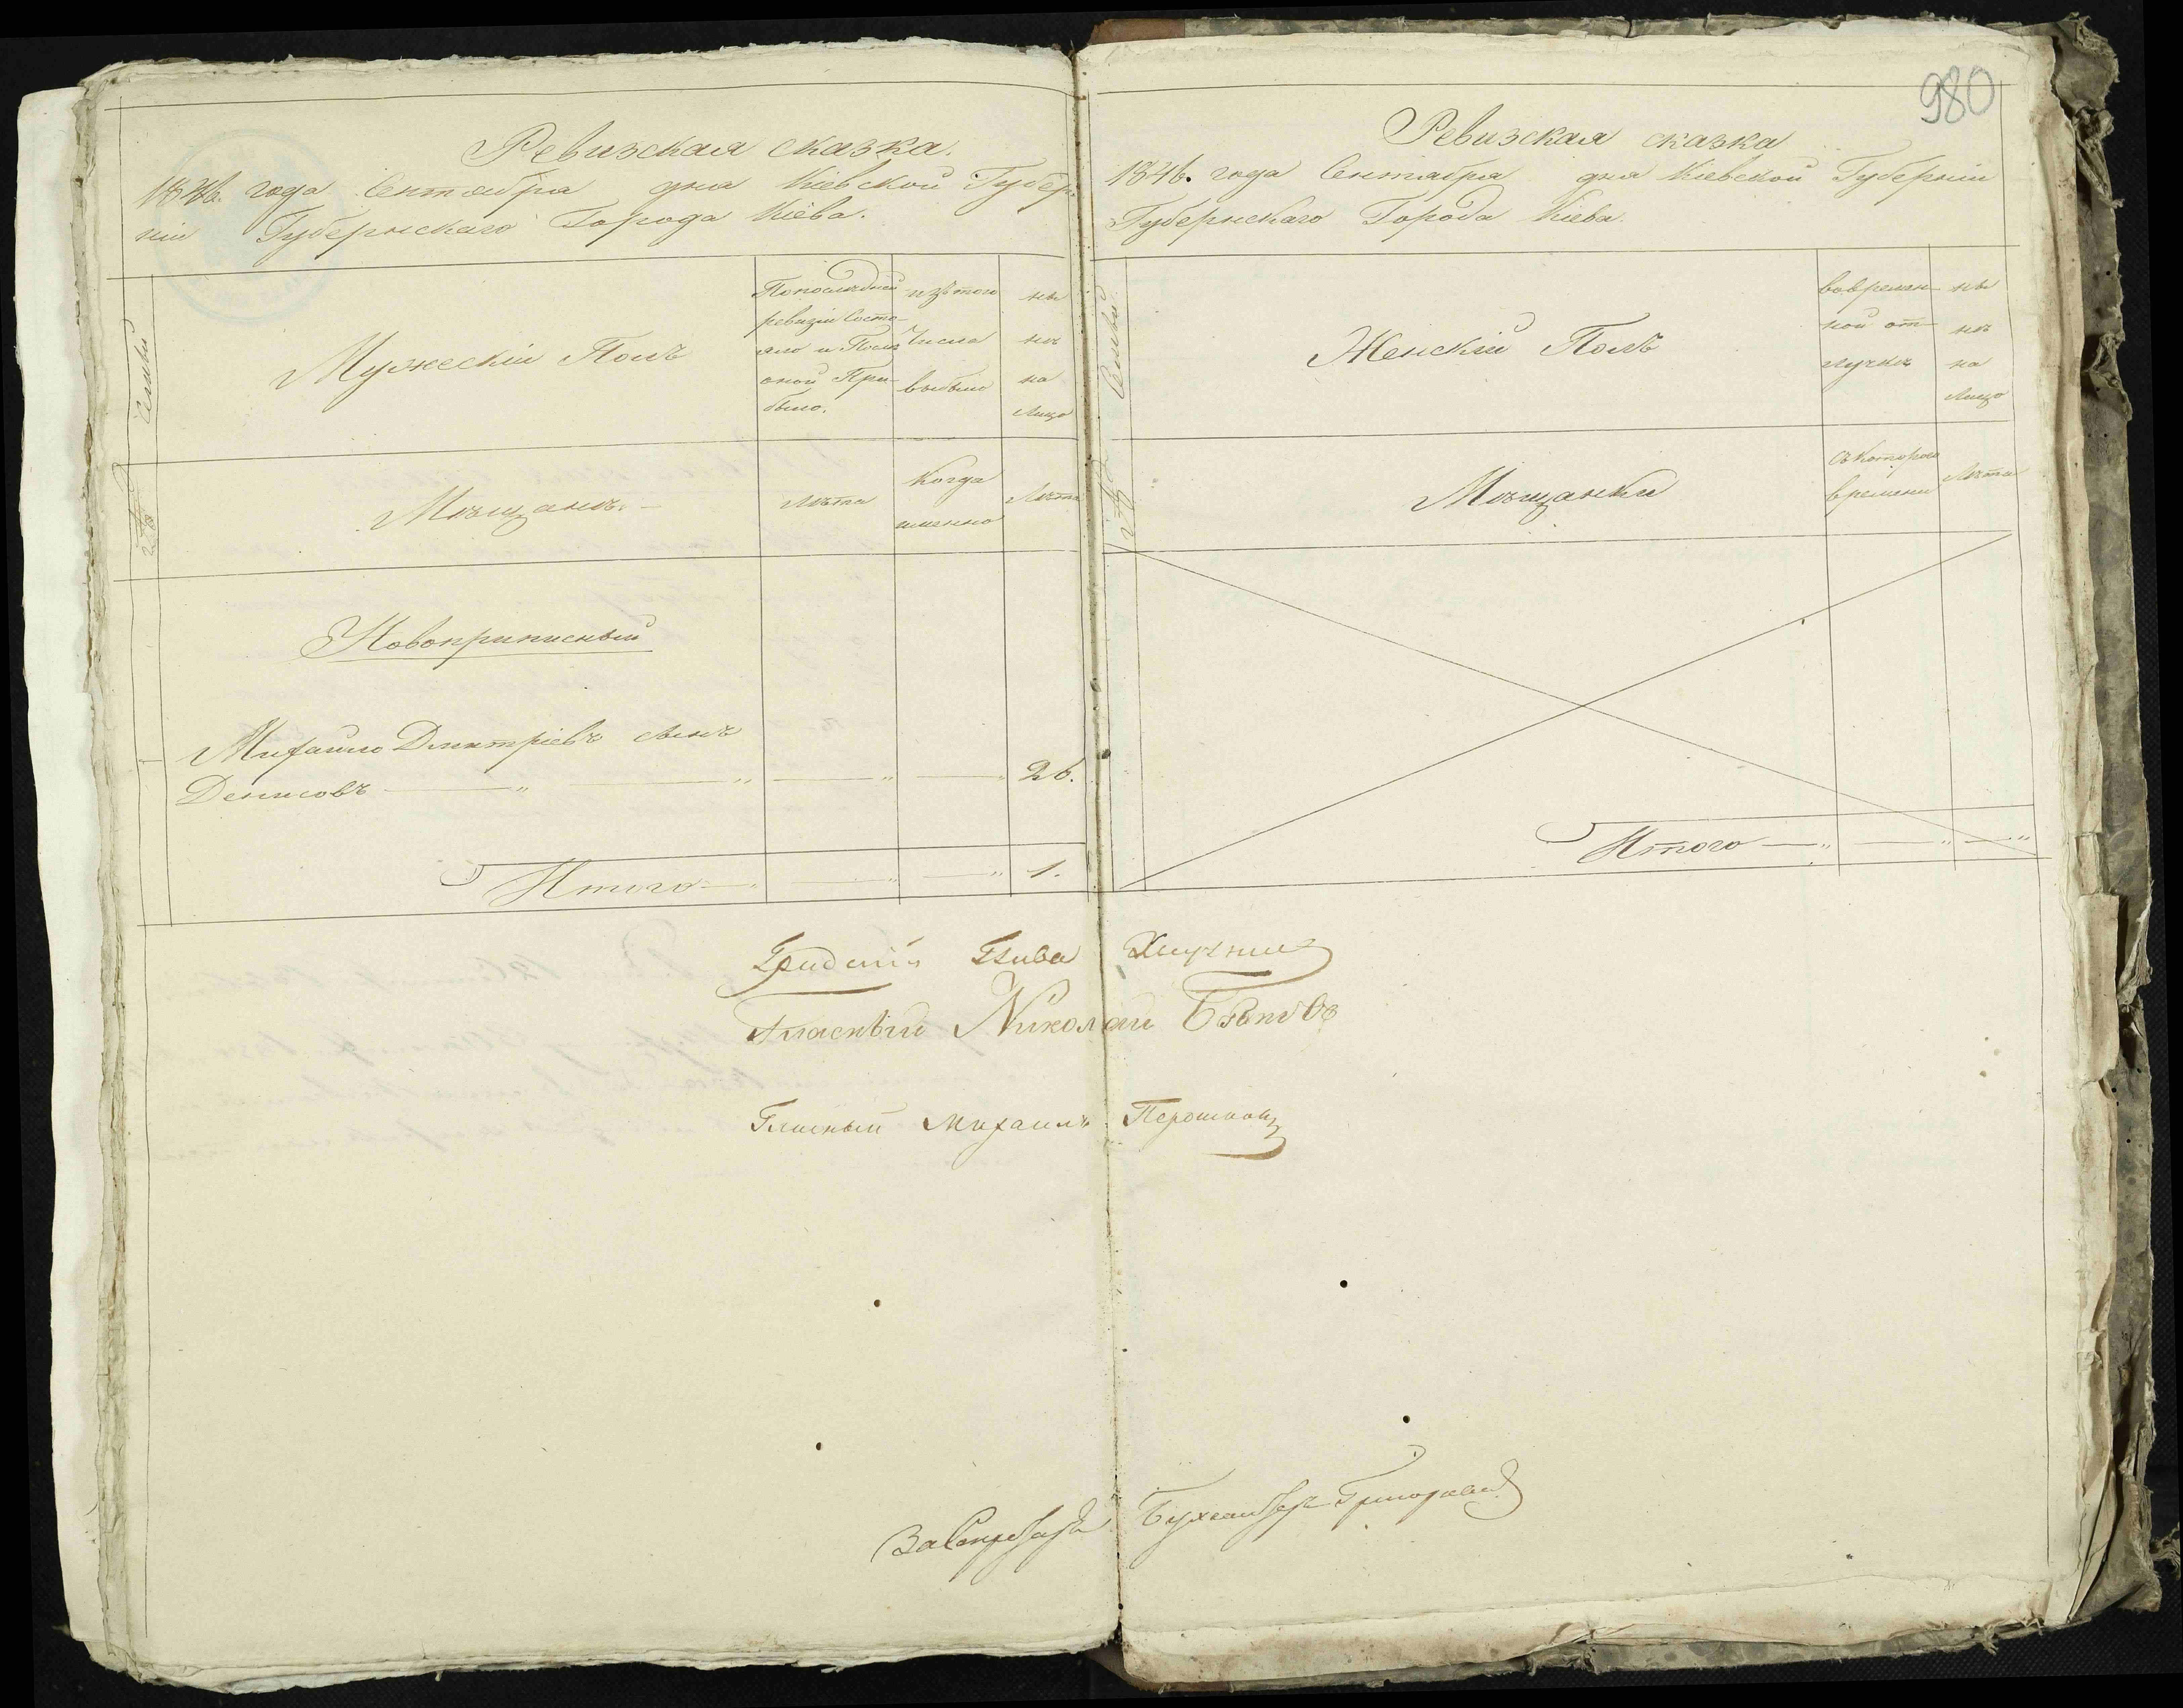 980
Ревизская сказка.
1846. года Сентября дня Кіевской Губер-
ніи Губернскаго Города Кіева.
№ Семьи
Мужескій Полъ
Попослѣдней
ревизіи Состо-
яло и Послѣ
оной При-
было.
изътого
Числа
выбыло
ны
нѣ
на
Лицо
Мѣщанѣ.
Лѣта
Когда
именно
Лѣта
Новоприписный
1 Михайло Дмитріевъ сынъ
Денисовъ — " — " — " — " 26.
Итого — " — " — " 1.
Ревизская сказка
1846. года Сентября дня Кіевской Губерніи
Губернскаго Города Кіева.
№ Семьи
Женскій Полъ
вовремен-
ной от-
лучкѣ
ны
нѣ
на
Лицо
Мѣщанки
Съкотораго
времени
Лѣта
Итого — " — " — "
Гласный Николай
Гласный Михаилъ
Бухгалтеръ